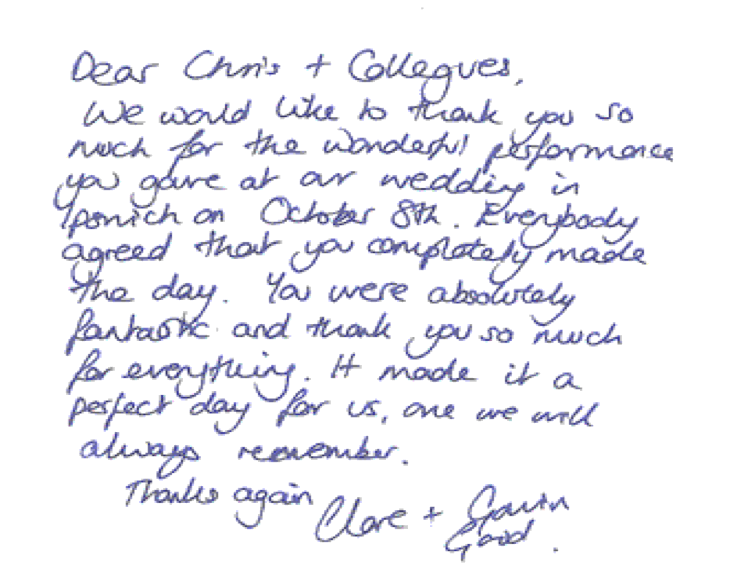 Dear Chris + Collegues,
We would like to thank you so
much for the wonderful performance
you gave at our wedding in
Ipswich on October 8th. Everybody
agreed that you completely made
the day. You were absolutely
fantastic and thank you so much
for everything. It made it a
perfect day for us, one we will
always remember.
Thanks again
Clare + Gavin
Good.